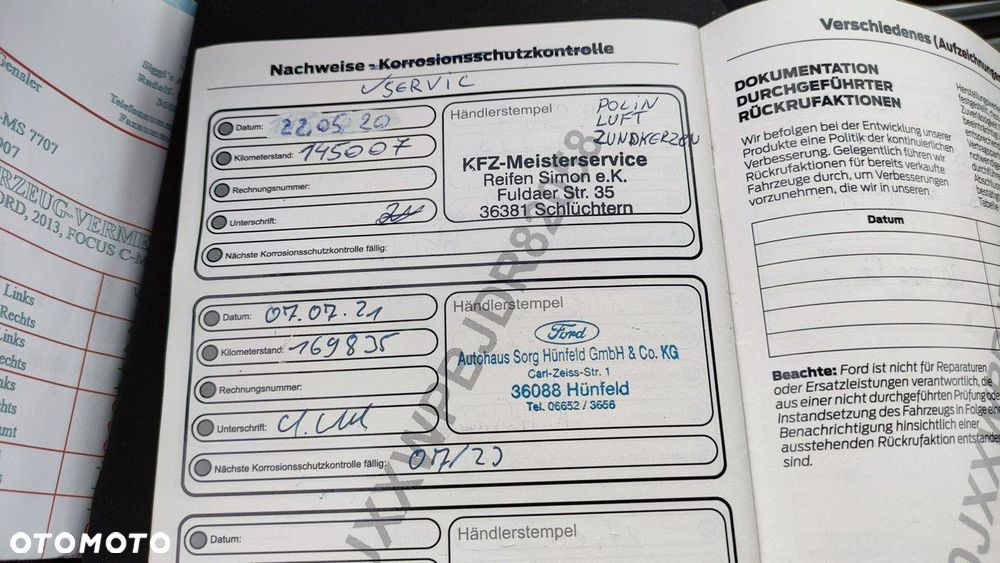 Gensler
-MS 7707
007
RZEUG-VERMIE
ORD, 2013, FOCUS C-M
Links
Rechts
Links
echts
ks
chts
amt
ks
Siggi's
Nachweise - Korrosionsschutzkontrolle
SERVIC
Datum: 22.05.20
Kilometerstand: 145007
Rechnungsnummer:
Unterschrift:
Nächste Korrosionsschutzkontrolle fällig:
Händlerstempel
POLIN
LUFT
ZUNDKERZEN
KFZ-Meisterservice
Reifen Simon e.K.
Fuldaer Str. 35
36381 Schlüchtern
Datum: 07.07.21
Kilometerstand: 169835
Rechnungsnummer:
Unterschrift:
Nächste Korrosionsschutzkontrolle fällig: 07/23
Händlerstempel
Ford
Autohaus Sorg Hünfeld GmbH & Co. KG
Carl-Zeiss-Str. 1
36088 Hünfeld
Tel. 06652 / 3656
Datum:
Händlerstempel
Verschiedenes (Aufzeichnungen
DOKUMENTATION
DURCHGEFÜHRTER
RÜCKRUFAKTIONEN
Wir befolgen bei der Entwicklung unserer
Produkte eine Politik der kontinuierlichen
Verbesserung. Gelegentlich führen wir
Rückrufaktionen für bereits verkaufte
Fahrzeuge durch, um Verbesserungen
vorzunehmen, die wir in unseren
Datum
Beachte: Ford ist nicht für Reparaturen
oder Ersatzleistungen verantwortlich, die
aus einer nicht durchgeführten Prüfung ode
Instandsetzung des Fahrzeugs in Folge eine
Benachrichtigung hinsichtlich einer
ausstehenden Rückrufaktion entstande
sind.
OTOMOTO